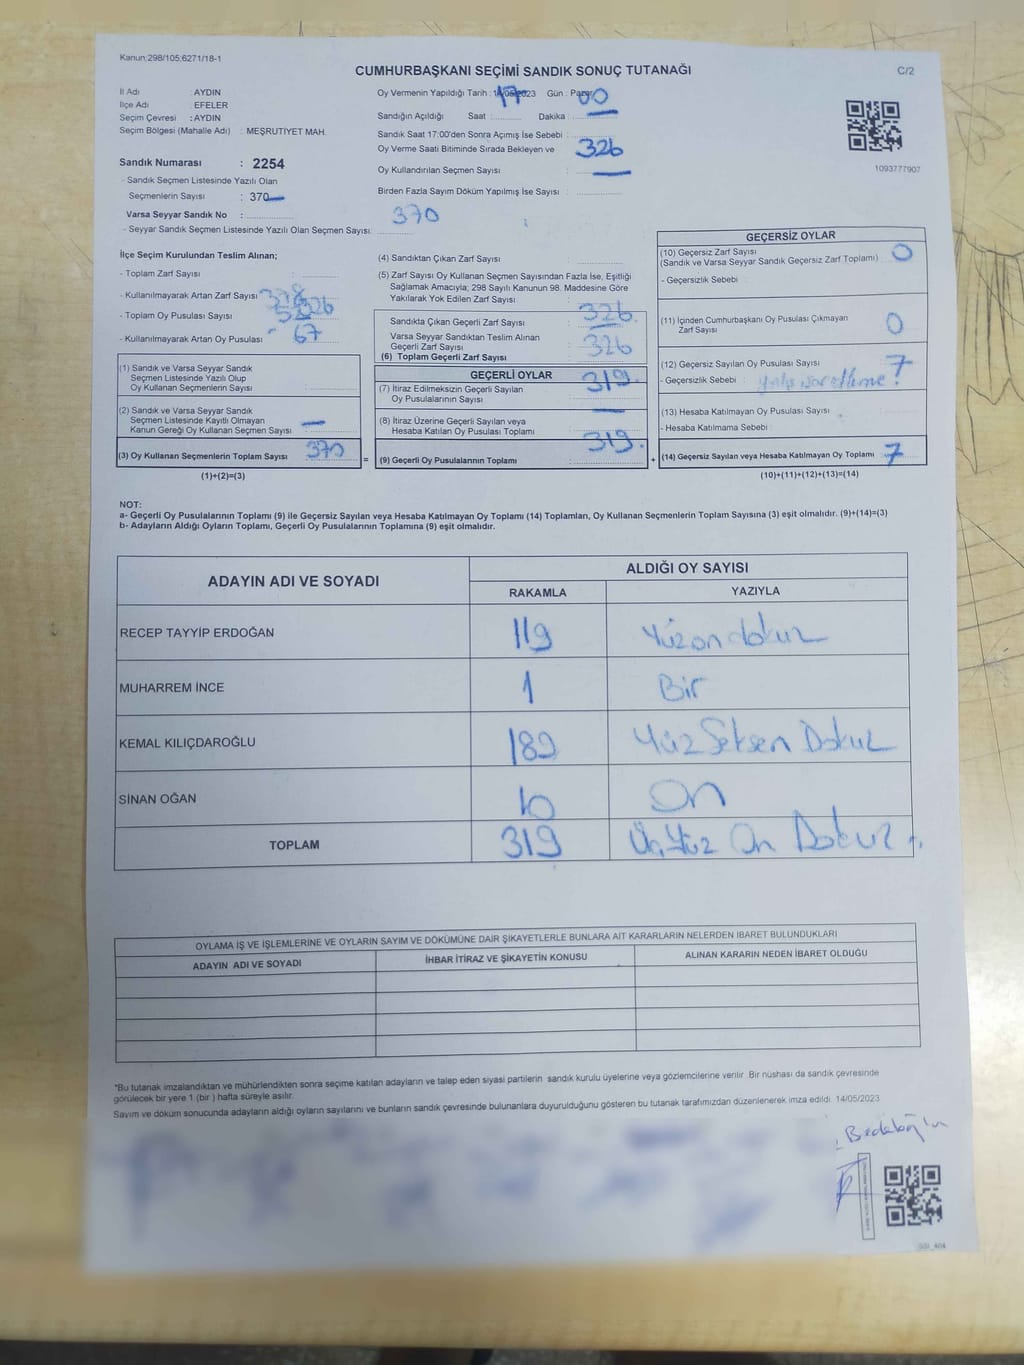 Kanun:298/105;6271/18-1
CUMHURBAŞKANI SEÇİMİ SANDIK SONUÇ TUTANAĞI
C/2
İl Adı : AYDIN
İlçe Adı : EFELER
Seçim Çevresi : AYDIN
Seçim Bölgesi (Mahalle Adı) : MEŞRUTİYET MAH.
Sandık Numarası : 2254
- Sandık Seçmen Listesinde Yazılı Olan
Seçmenlerin Sayısı : 370
Varsa Seyyar Sandık No :
- Seyyar Sandık Seçmen Listesinde Yazılı Olan Seçmen Sayısı:
370
Oy Vermenin Yapıldığı Tarih : 14/05/2023 Gün : Pazar
Sandığın Açıldığı Saat : 17 Dakika : 00
Sandık Saat 17:00'den Sonra Açımış İse Sebebi :
Oy Verme Saati Bitiminde Sırada Bekleyen ve
Oy Kullandırılan Seçmen Sayısı : 326
Birden Fazla Sayım Döküm Yapılmış İse Sayısı :
1093777907
İlçe Seçim Kurulundan Teslim Alınan;
- Toplam Zarf Sayısı :
- Kullanılmayarak Artan Zarf Sayısı
- Toplam Oy Pusulası Sayısı :
- Kullanılmayarak Artan Oy Pusulası : 67
(1) Sandık ve Varsa Seyyar Sandık
Seçmen Listesinde Yazılı Olup
Oy Kullanan Seçmenlerin Sayısı :
(2) Sandık ve Varsa Seyyar Sandık
Seçmen Listesinde Kayıtlı Olmayan
Kanun Gereği Oy Kullanan Seçmen Sayısı :
(3) Oy Kullanan Seçmenlerin Toplam Sayısı : 370
(1)+(2)=(3)
=
(4) Sandıktan Çıkan Zarf Sayısı :
(5) Zarf Sayısı Oy Kullanan Seçmen Sayısından Fazla İse, Eşitliği
Sağlamak Amacıyla; 298 Sayılı Kanunun 98. Maddesine Göre
Yakılarak Yok Edilen Zarf Sayısı :
Sandıkta Çıkan Geçerli Zarf Sayısı : 326
Varsa Seyyar Sandıktan Teslim Alınan
Geçerli Zarf Sayısı : 326
(6) Toplam Geçerli Zarf Sayısı
GEÇERLİ OYLAR
(7) İtiraz Edilmeksizin Geçerli Sayılan
Oy Pusulalarının Sayısı : 319
(8) İtiraz Üzerine Geçerli Sayılan veya
Hesaba Katılan Oy Pusulası Toplamı :
(9) Geçerli Oy Pusulalarının Toplamı : 319
+
GEÇERSİZ OYLAR
(10) Geçersiz Zarf Sayısı
(Sandık ve Varsa Seyyar Sandık Geçersiz Zarf Toplamı) : 0
- Geçersizlik Sebebi :
(11) İçinden Cumhurbaşkanı Oy Pusulası Çıkmayan
Zarf Sayısı : 0
(12) Geçersiz Sayılan Oy Pusulası Sayısı : 7
- Geçersizlik Sebebi :
(13) Hesaba Katılmayan Oy Pusulası Sayısı
- Hesaba Katılmama Sebebi
(14) Geçersiz Sayılan veya Hesaba Katılmayan Oy Toplamı : 7
(10)+(11)+(12)+(13)=(14)
NOT:
a- Geçerli Oy Pusulalarının Toplamı (9) ile Geçersiz Sayılan veya Hesaba Katılmayan Oy Toplamı (14) Toplamları, Oy Kullanan Seçmenlerin Toplam Sayısına (3) eşit olmalıdır. (9)+(14)=(3)
b- Adayların Aldığı Oyların Toplamı, Geçerli Oy Pusulalarının Toplamına (9) eşit olmalıdır.
ADAYIN ADI VE SOYADI
ALDIĞI OY SAYISI
RAKAMLA YAZIYLA
RECEP TAYYİP ERDOĞAN 119 Yüzondokuz
MUHARREM İNCE 1 Bir
KEMAL KILIÇDAROĞLU 189 Yüz Seksen Dokuz
SİNAN OĞAN 10 On
TOPLAM 319 Üç Yüz On Dokuz
OYLAMA İŞ VE İŞLEMLERİNE VE OYLARIN SAYIM VE DÖKÜMÜNE DAİR ŞİKAYETLERLE BUNLARA AİT KARARLARIN NELERDEN İBARET BULUNDUKLARI
ADAYIN ADI VE SOYADI İHBAR İTİRAZ VE ŞİKAYETİN KONUSU ALINAN KARARIN NEDEN İBARET OLDUĞU
*Bu tutanak imzalandıktan ve mühürlendikten sonra seçime katılan adayların ve talep eden siyasi partilerin sandık kurulu üyelerine veya gözlemcilerine verilir. Bir nüshası da sandık çevresinde
görülecek bir yere 1 (bir ) hafta süreyle asılır.
Sayım ve döküm sonucunda adayların aldığı oyların sayılarını ve bunların sandık çevresinde bulunanlara duyurulduğunu gösteren bu tutanak tarafımızdan düzenlenerek imza edildi. 14/05/2023